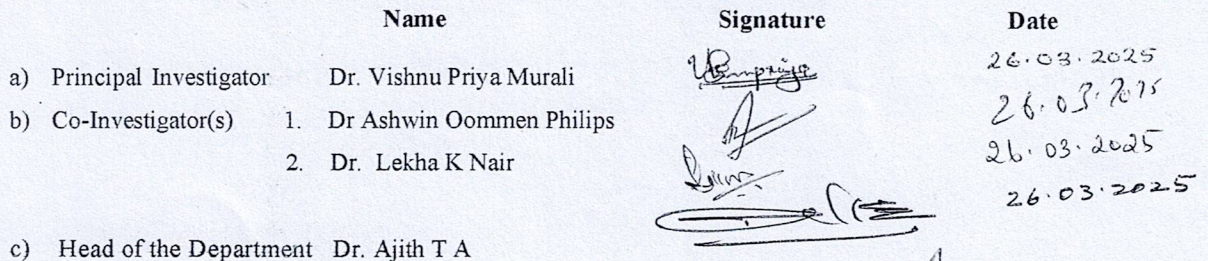 Name Signature Date
26.03.2025
a) Principal Investigator Dr. Vishnu Priya Murali
26.03.2025
b) Co-Investigator(s) 1. Dr Ashwin Oommen Philips
26.03.2025
2. Dr. Lekha K Nair
26.03.2025
c) Head of the Department Dr. Ajith T A